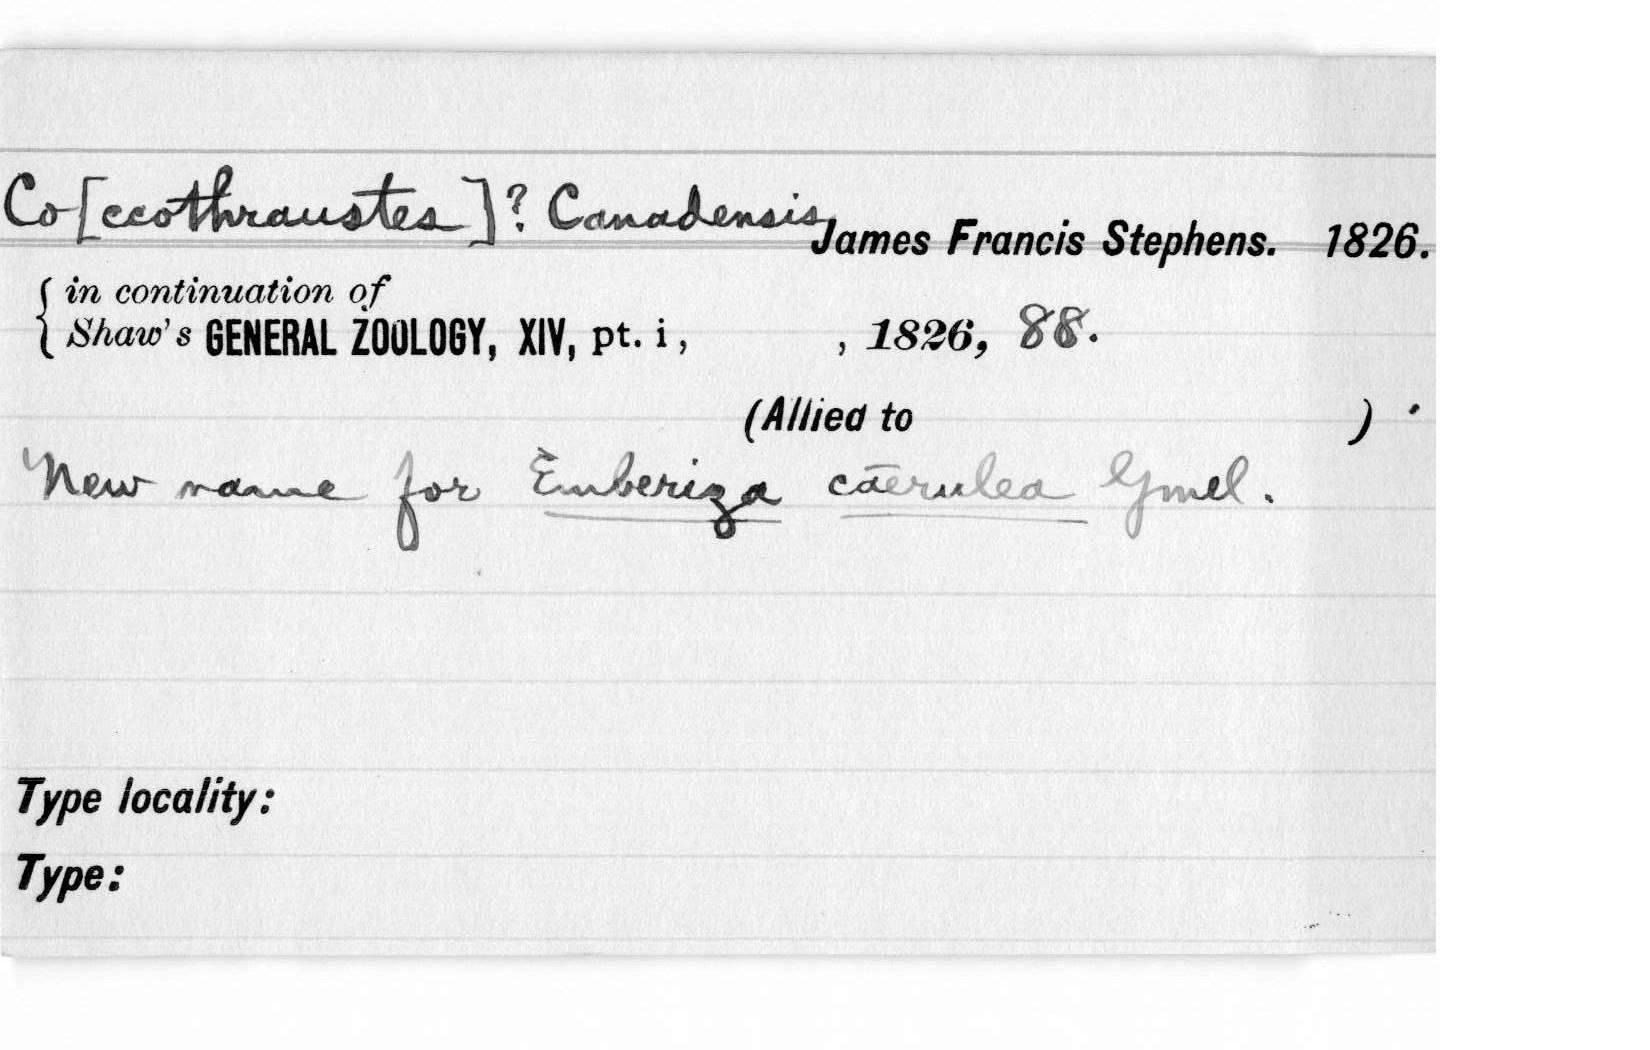 Co[ccothraustes]? Canadensis James Francis Stephens. 1826.
{ in continuation of
Shaw's GENERAL ZOOLOGY, XIV, pt. i, , 1826, 88.
(Allied to ) .
New name for Emberiza cærulea Gmel.
Type locality:
Type: